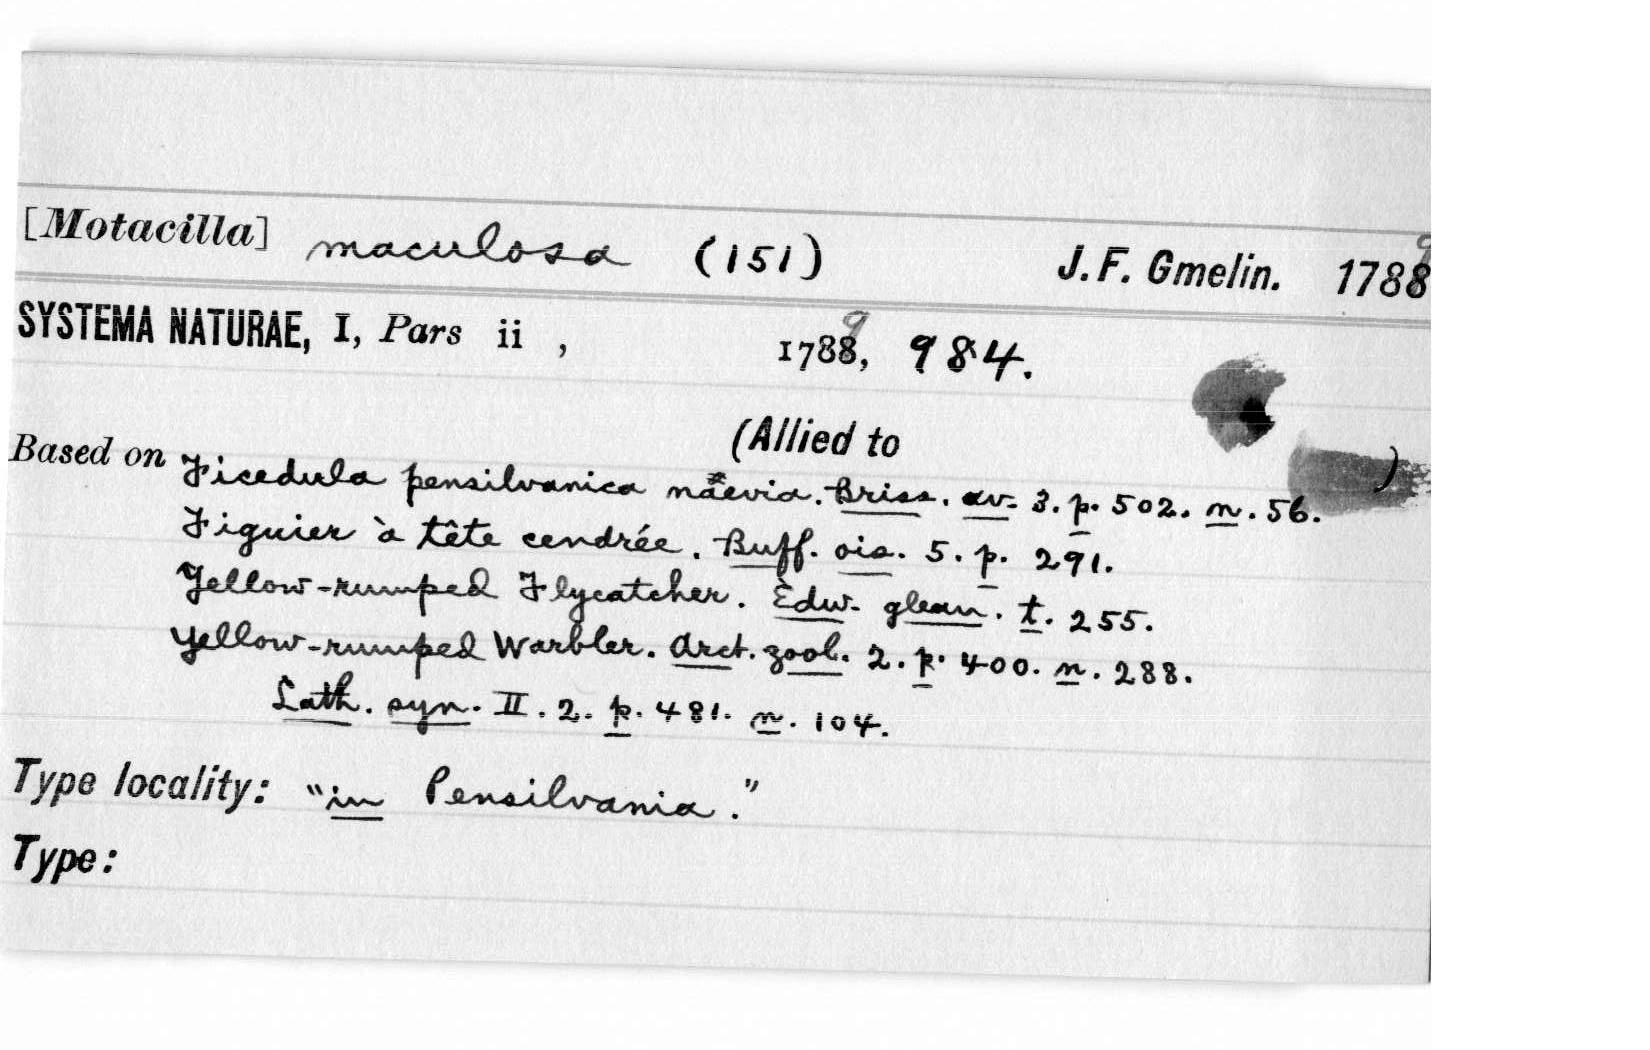 [Motacilla] maculosa (151) J. F. Gmelin. 17889
SYSTEMA NATURAE, I, Pars ii , 17889, 984.
(Allied to )
Based on Ficedula pensilvanica naevia. Briss. av. 3. p. 502. n. 56.
Figuier à tête cendrée. Buff. ois. 5. p. 291.
Yellow-rumped Flycatcher. Edw. glean. t. 255.
Yellow-rumped Warbler. Arct. zool. 2. p. 400. n. 288.
Lath. syn. II. 2. p. 481. n. 104.
Type locality: "in Pensilvania."
Type: